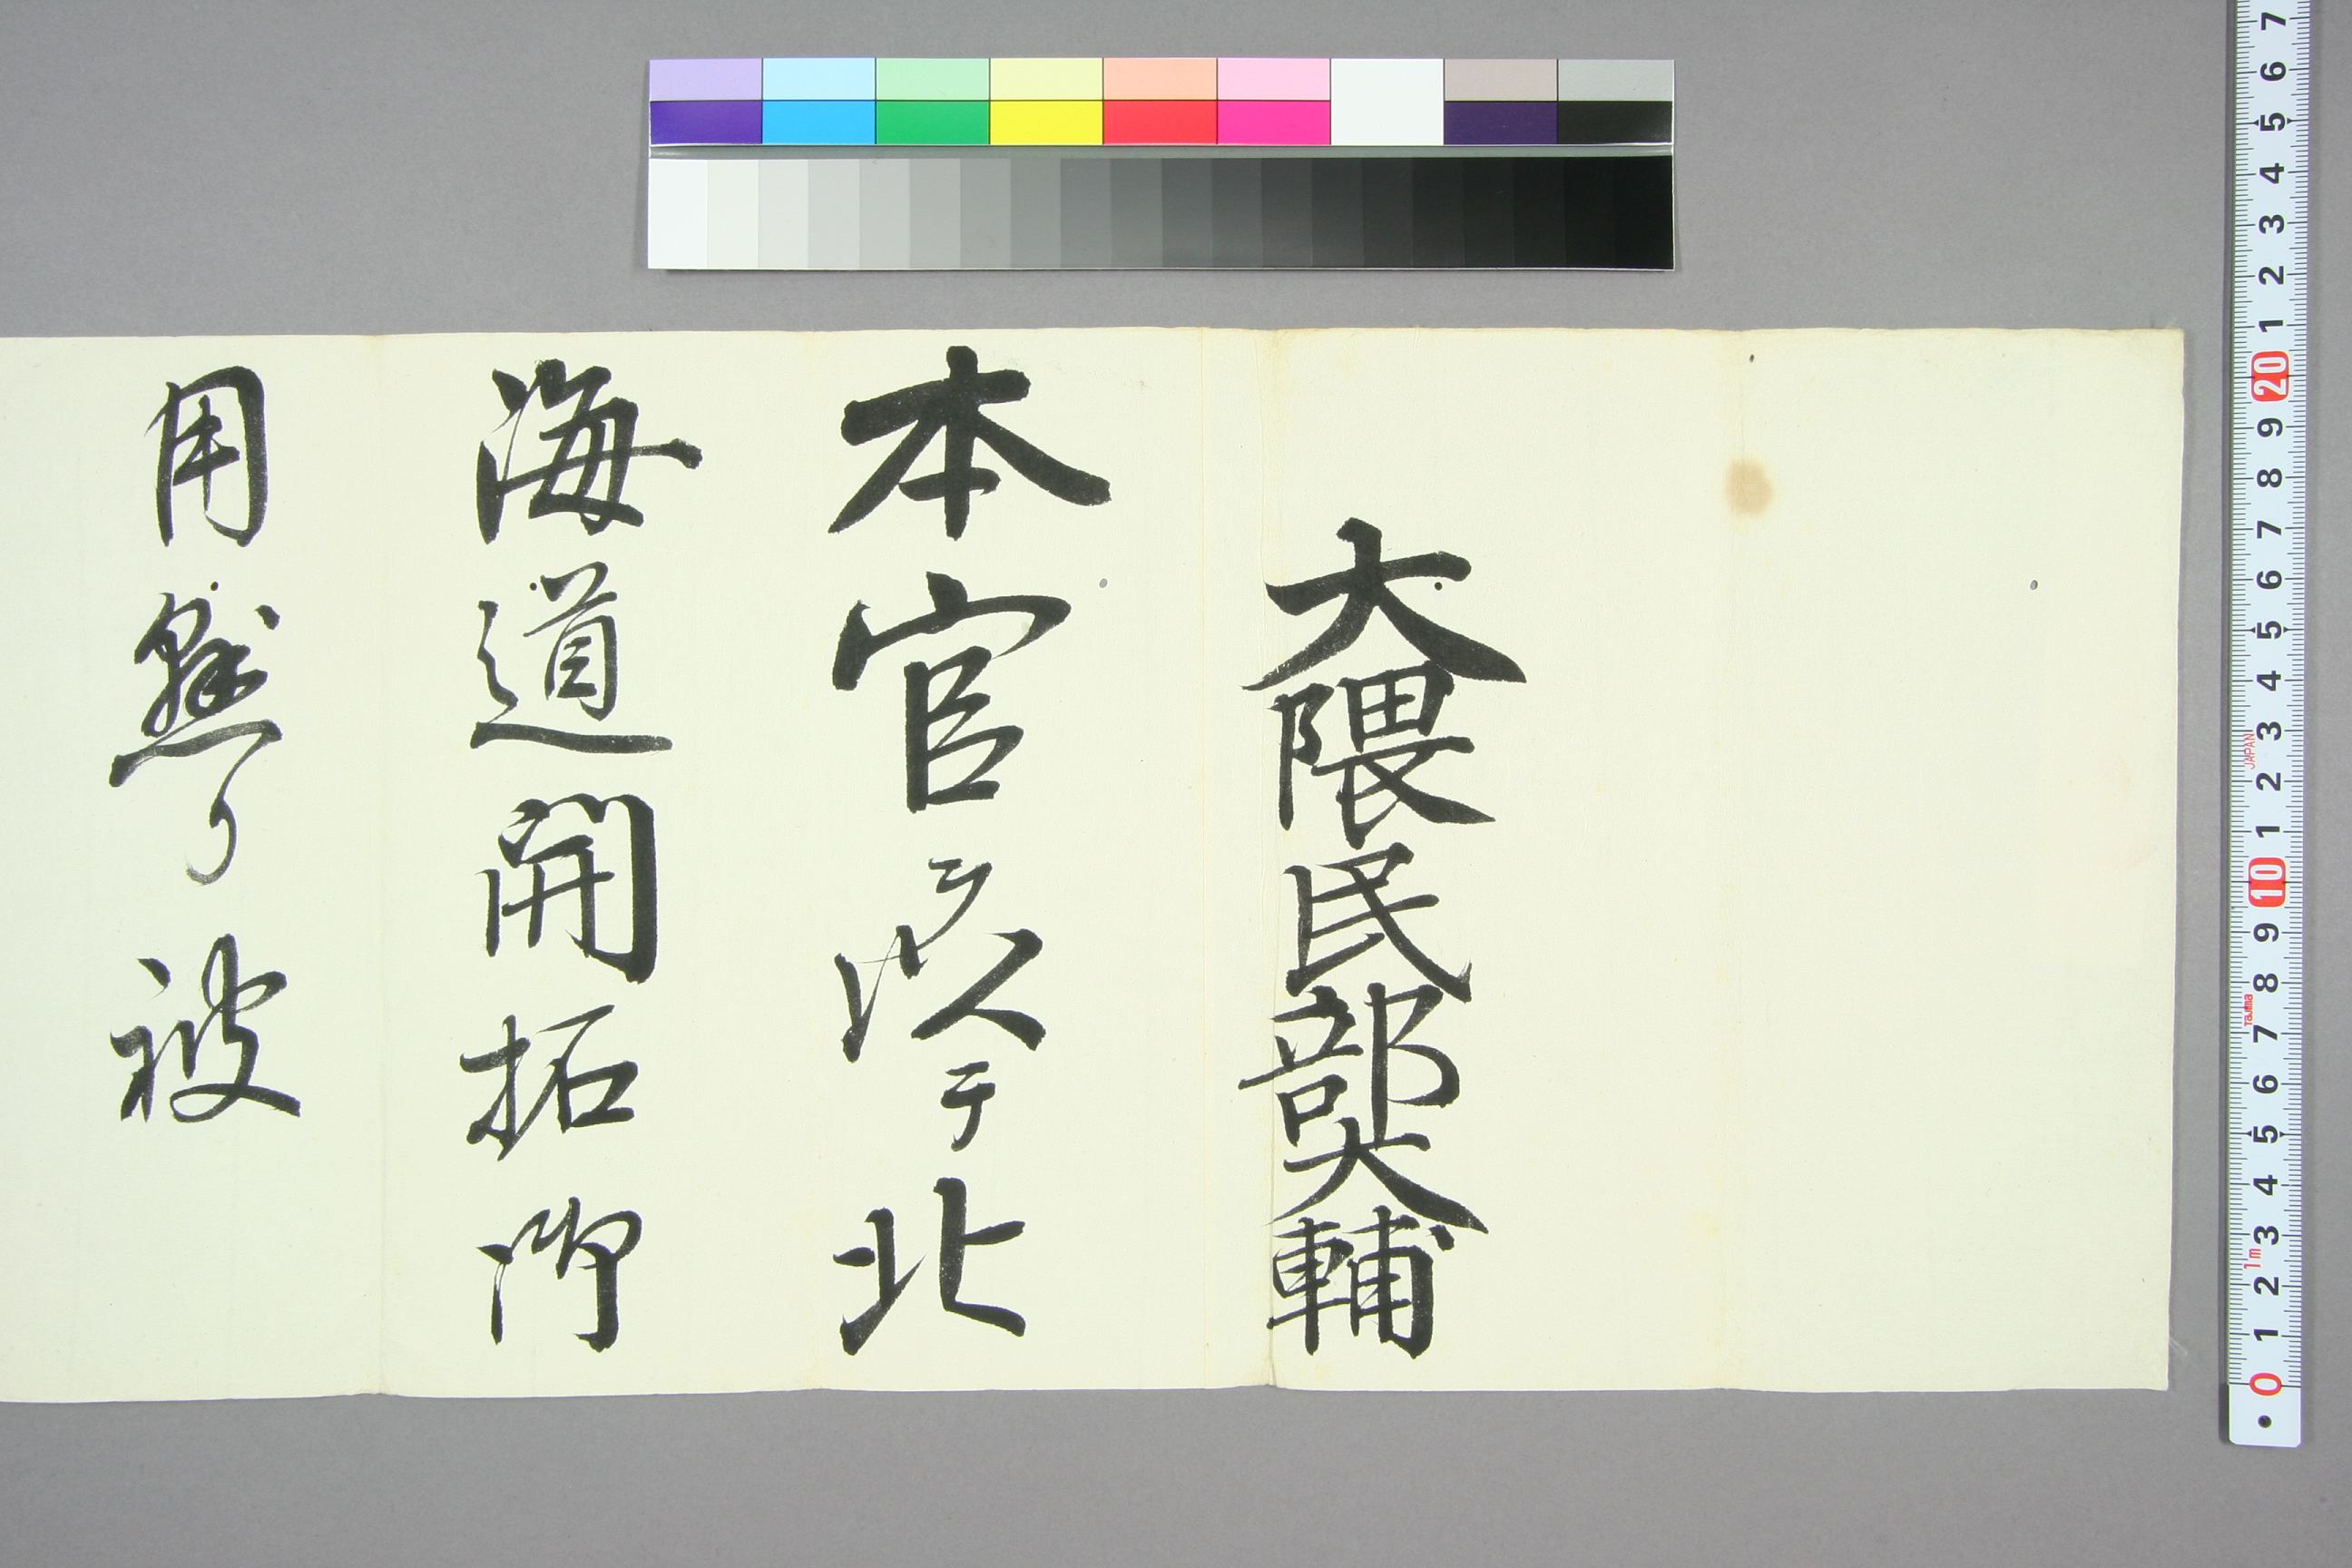 大隈民部大輔
本官ヲ以テ北
海道開拓御
用懸り被
0 1 2 3 4 5 6 7 8 9 10 1 2 3 4 5 6 7 8 9 20 1 2 3 4 5 6 7
1m Tajima JAPAN